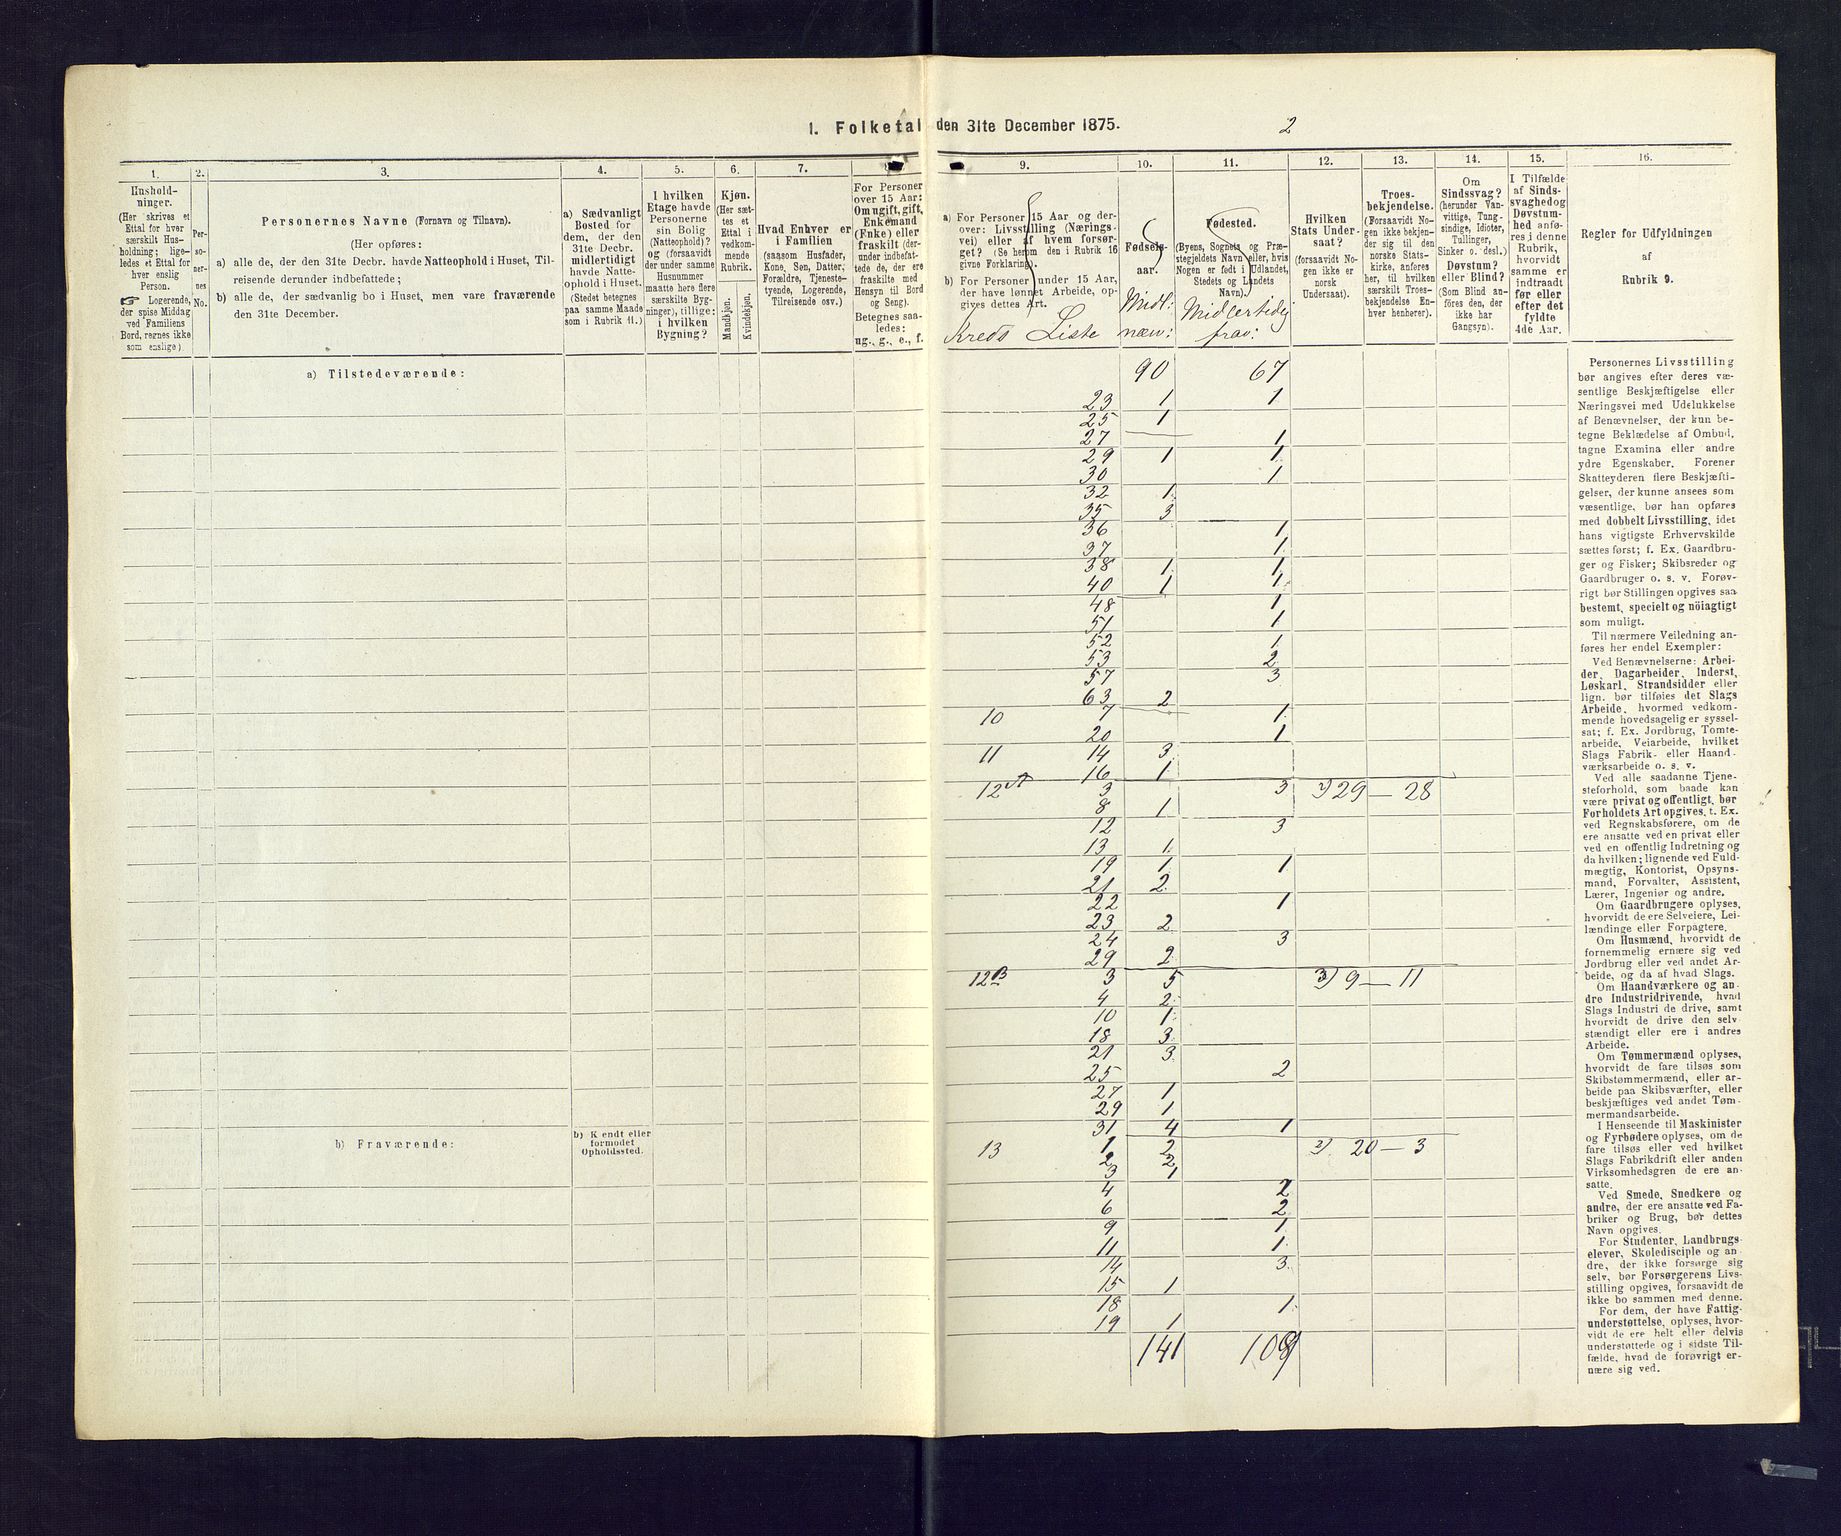 1. Folketal den 31te December 1875.
2
1.
Hushold-
ninger.
(Her skrives et
Ettal for hver
særskilt Hus-
holdning; lige-
ledes et Ettal for
hver enslig
Person.
☞ Logerende,
der spise Middag
ved Familiens
Bord, regnes ikke
som enslige).
2.
Per-
so-
ner-
nes
No.
3.
Personernes Navne (Fornavn og Tilnavn).
(Her opføres:
a) alle de, der den 31te Decbr. havde Natteophold i Huset, Til-
reisende derunder indbefattede;
b) alle de, der sædvanlig bo i Huset, men vare fraværende
den 31te December.
4.
a) Sædvanligt
Bosted for
dem, der den
31te Decbr.
midlertidigt
havde Natte-
ophold i Huset.
(Stedet betegnes
paa samme Maade
som i Rubrik 11.)
5.
I hvilken
Etage havde
Personerne
sin Bolig
(Natteophold)?
og (forsaavidt
der under samme
Husnummer
maatte høre flere
særskilte Byg-
ninger), tillige:
i hvilken
Bygning?
6.
Kjøn.
(Her sæt-
tes et
Ettal i
vedkom-
mende
Rubrik.
Mandkjøn.
Kvindekjøn.
7.
Hvad Enhver er
i Familien
(saasom Husfader,
Kone, Søn, Datter,
Forældre, Tjeneste-
tyende, Logerende,
Tilreisende osv.)
For Personer
over 15 Aar:
Om ugift, gift,
Enkemand
(Enke) eller
fraskilt (der-
under indbefat-
tede de, der ere
fraskilte med
Hensyn til Bord
og Seng).
Betegnes saa-
ledes:
ug., g., e., f.
9.
a) For Personer 15 Aar og der-
over: Livsstilling (Nærings-
vei) eller af hvem forsør-
get? (Se herom den i Rubrik 16
givne Forklaring).
b) For Personer under 15 Aar,
der have lønnet Arbeide, op-
gives dettes Art.
Kreds Liste
10.
Fødsels-
aar.
Midl:
næv:
11.
Fødested.
(Byens, Sognets og Præ-
stegjeldets Navn eller, hvis
Nogen er født i Udlandet,
Stedets og Landets
Navn).
Midlertidig
frav:
12.
Hvilken
Stats Under-
saat?
(forsaavidt No-
gen ikke er
norsk
Undersaat).
13.
Troes-
bekjendelse.
(Forsaavidt No-
gen ikke bekjen-
der sig til den
norske Stats-
kirke, anføres
her, til hvilken
særskilt Troes-
bekjendelse En-
hver henhører).
14.
Om
Sindssvag?
(herunder Van-
vittige, Tung-
sindige, Idioter,
Tullinger,
Sinker o. desl.)
Døvstum?
eller Blind?
(Som Blind an-
føres den, der
ikke har
Gangsyn).
15.
I Tilfælde
af Sinds-
svaghed og
Døvstum-
hed anfø-
res i denne
Rubrik,
hvorvidt
samme er
indtraadt
før eller
efter det
fyldte
4de Aar.
16.
Regler for Udfyldningen
af
Rubrik 9.
a) Tilstedeværende:
90 67
23 1 1
25 1
27 1
29 1 1
30 1
32 1
35 3
36 1
37 1
38 1 1
40 1 1
48 1
51 1
52 1
53 2
57 3
63 2
10 7 1
20 1
11 14 3
16 1
12A 3 3 29 — 28
8 1
12 3
13 1
19 1 1
21 2
22 1
23 2
24 3
29 2
12B 3 5 9 — 11
4 2
10 1
18 3
21 3
25 2
27 1
29 1
31 4 1
b) Fraværende:
b) Kjendt eller
formodet
Opholdssted.
13 1 2 20 — 3
2 2
3 1
4 2
6 2
9 1
11 1
14 3
15 1
18 1
19 1
141 108
Personernes Livsstilling
bør angives efter deres væ-
sentlige Beskjæftigelse eller
Næringsvei med Udelukkelse
af Benævnelser, der kun be-
tegne Beklædelse af Ombud,
tagne Examina eller andre
ydre Egenskaber. Forener
Skatteyderen flere Beskjæfti-
gelser, der kunne ansees som
væsentlige, bør han opføres
med dobbelt Livsstilling, idet
hans vigtigste Erhvervskilde
sættes først; f. Ex. Gaardbru-
ger og Fisker; Skibsreder og
Gaardbruger o. s. v. Forøv-
rigt bør Stillingen opgives saa
bestemt, specielt og nöiagtigt
som muligt.
Til nærmere Veiledning an-
føres her endel Exempler:
Ved Benævnelserne: Arbei-
der, Dagarbeider, Inderst,
Løskarl, Strandsidder eller
lign. bør tilføies det Slags
Arbeide, hvormed vedkom-
mende hovedsagelig er syssel-
sat; f. Ex. Jordbrug, Tomte-
arbeide, Veiarbeide, hvilket
Slags Fabrik- eller Haand-
værksarbeide o. s. v.
Ved alle saadanne Tjene-
steforhold, som baade kan
være privat og offentligt, bør
Forholdets Art opgives, t. Ex.
ved Regnskabsførere, om de
ere ansatte ved en privat eller
ved en offentlig Indretning og
da hvilken; lignende ved Fuld-
mægtig, Kontorist, Opsyns-
mand, Forvalter, Assistent,
Lærer, Ingeniør og andre.
Om Gaardbrugere oplyses,
hvorvidt de ere Selveiere, Lei-
lændinge eller Forpagtere.
Om Husmænd, hvorvidt de
fornemmelig ernære sig ved
Jordbrug eller ved andet Ar-
beide, og da af hvad Slags.
Om Haandværkere og an-
dre Industridrivende, hvad
Slags Industri de drive, samt
hvorvidt de drive den selv-
stændigt eller ere i andres
Arbeide.
Om Tømmermænd oplyses,
hvorvidt de fare tilsøs som
Skibstømmermænd, eller ar-
beide paa Skibsværfter, eller
beskjæftiges ved andet Tøm-
mermandsarbeide.
I Henseende til Maskinister
og Fyrbødere oplyses, om de
fare tilsøs eller ved hvilket
Slags Fabrikdrift eller anden
Virksomhedsgren de ere an-
satte.
Ved Smede, Snedkere og
andre, der ere ansatte ved Fa-
briker og Brug, bør dettes
Navn opgives.
For Studenter, Landbrugs-
elever, Skoledisciple og an-
dre, der ikke forsørge sig
selv, bør Forsørgerens Livs-
stilling opgives, forsaavidt de
ikke bo sammen med denne.
For dem, der have Fattig-
understøttelse, oplyses, hvor-
vidt de ere helt eller delvis
understøttede og i sidste Til-
fælde, hvad de forøvrigt er-
nære sig ved.